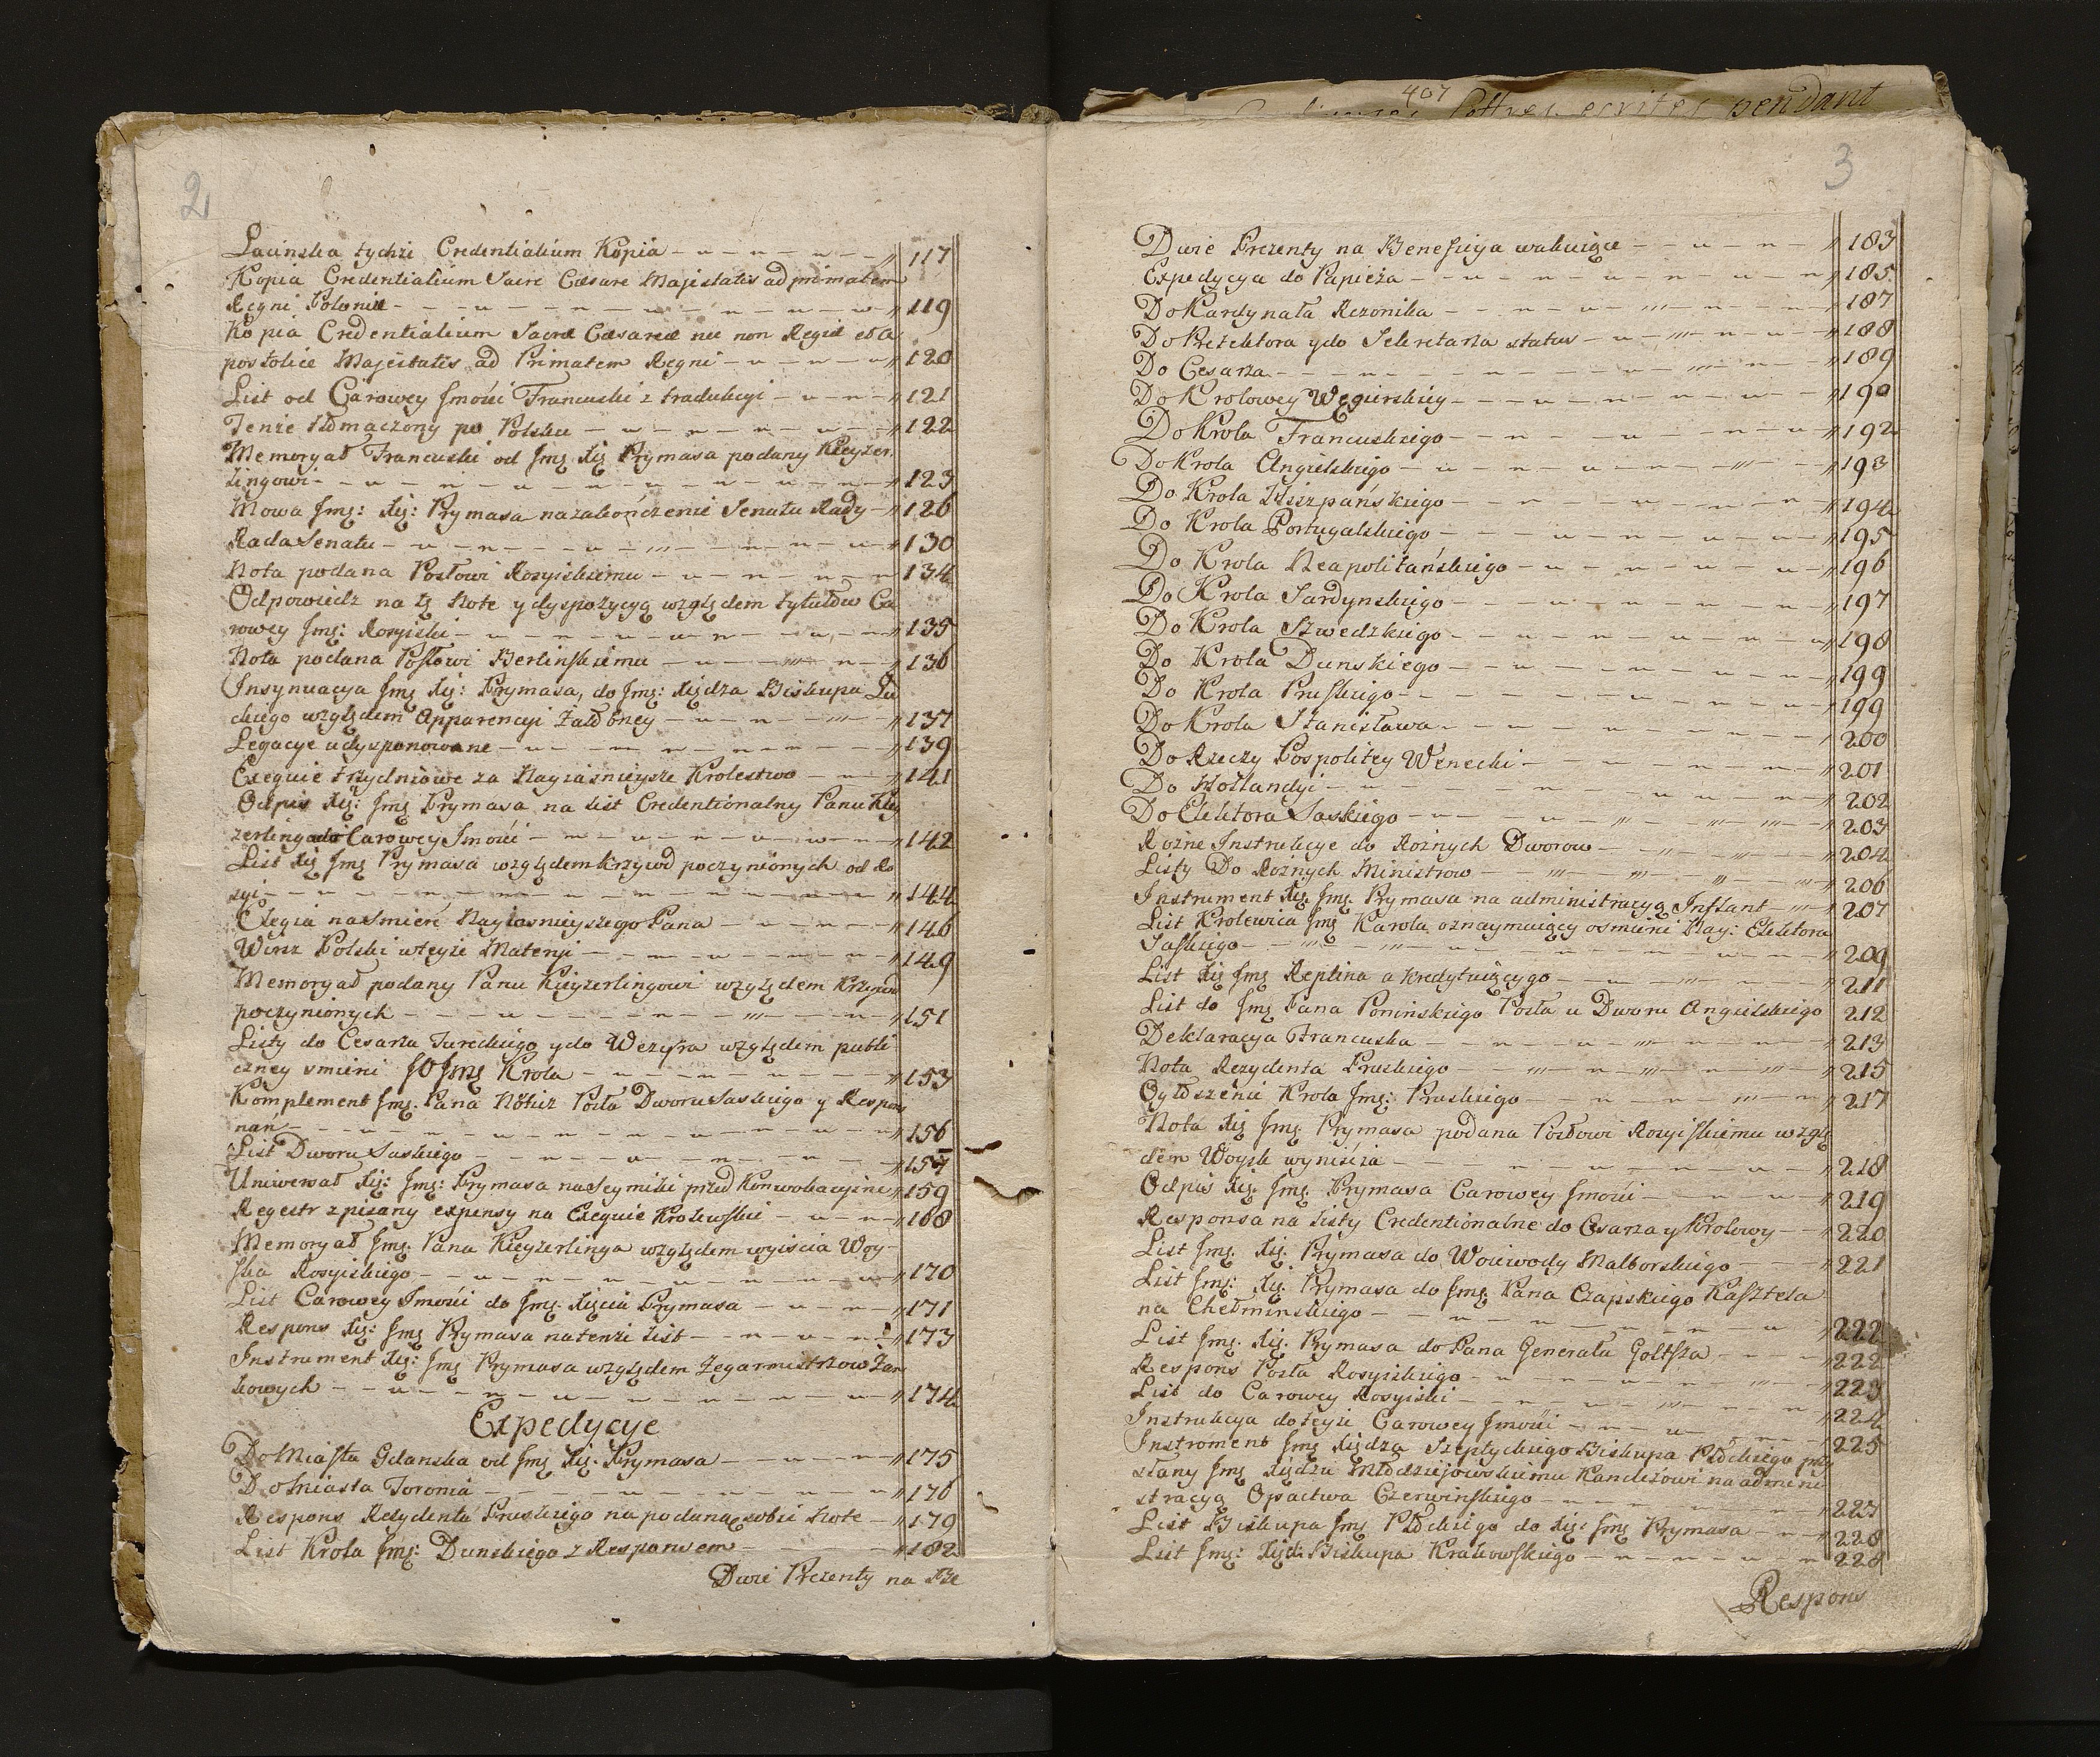 2
Łacińska tychże Credentialium Kopia 117
Kopia Credentialium Sacre Cæsare Majestatis ad primatem
Regni Poloniæ 119
Kopia Credentialium Sacræ Cæsareæ nec non Regiæ et A
postolice Majestatis ad Primatem Regni 120
List od Carowey Jmości Francuski z tradukcyi 121
Tenże tłomaczony po Polsku 122
Memoryał Francuski od Jmę Xię Prymasa podany Kieyzer
lingowi 123
Mowa Jmę: Xię: Prymasa na zakończenie Senatu Rady 126
Rada Senatu 130
Nota podana Posłowi Rosyiskiemu 134
Odpowiedz na tę Note y dyspozycyą względem tytułów Ca
rowey Jmę: Rosyiski 135
Nota podana Posłowi Berlinskiemu 136
Insynuacya Jmę Xię: Prymasa, do Jmę: Xiędza Biskupa Łu
ckiego względem Apparencyi Żałobney 137
Legacye udysponowane 139
Exequie trzydniowe za Nayiaśnieysze Krolestwo 141
Odpis Xię: Jmę Prymasa na list Credentionalny Panu Kiey
zerlinga do Carowey Jmości 142
List Xię Jmę Prymasa względem krzywd poczynionych od Ro
syi 144
Elegia na Smierć Nayiasnieyszego Pana 146
Wiersz Polski w teyże Materyi 149
Memoryał podany Panu Kieyzerlingowi względem Krzywd
poczynionych 151
Listy do Cesarza Tureckiego y do Wezyra względem publi
czney smierci JO Jmę Krola 153
Komplement Jmę. Pana Nötuz Posła Dworu Saskiego y Respons
nań 156
List Dworu Saskiego 157
Uniwersał Xię: Jmę: Prymasa na Seymiki przed Konwokacyine 159
Regestr zpisany expensy na Exequie Krolewskie 168
Memoryał Jmę. Pana Kieyzerlinga względem wyiscia Woy-
ska Rosyiskiego 170
List Carowey Jmości do Jmę. Xięcia Prymasa 171
Respons Xię: Jmę Prymasa na tenże list 173
Instrument Xię: Jmę Prymasa względem Zegarmistrzow Zam
kowych 174
Expedycye
Do Miasta Gdanska od Jmę Xię. Prymasa 175
Do Miasta Toronia 176
Respons Rezydenta Pruskiego na podaną sobie Note 179
List Krola Jmę: Dunskiego z Responsem 182
Dwie Prezenty na Be
407
lettres ecrites pendant
3
Dwie Prezenty na Beneficya wakuiące 183
Expedycya do Papieża 185
Do Kardynała Rezonika 187
Do Protektora y do Sekretarza status 188
Do Cesarza 189
Do Krolowey Węgierskiey 190
Do Krola Francuskiego 192
Do Krola Angielskiego 193
Do Krola Hiszpańskiego 194
Do Krola Portugalskiego 195
Do Krola Neapolitańskiego 196
Do Krola Sardynskiego 197
Do Krola Szwedzkiego 198
Do Krola Dunskiego 199
Do Krola Pruskiego 199
Do Krola Stanisława 200
Do Rzeczy Pospolitey Wenecki 201
Do Hollandyi 202
Do Elektora Saskiego 203
Rożne Instrukcye do Rożnych Dworow 204
Listy Do Rożnych Ministrow 206
Instrument Xię. Jmę. Prymasa na administracyą Inflant 207
List Krolewica Jmę Karola oznaymuiący o smierci Nay: Elektora
Saskiego 209
List Xię Jmę Replina akredytuiącygo 211
List do Jmę Pana Poninskiego Posła u Dworu Angielskiego 212
Deklaracya Francuska 213
Nota Rezydenta Pruskiego 215
Ogłoszenie Krola Jmę: Pruskiego 217
Nota Xię Jmę. Prymasa podana Posłowi Rosyiskiemu wzglę
dem Woysk wyniścia 218
Odpis Xię. Jmę. Prymasa Carowey Jmości 219
Responsa na listy Credentionalne do Cesarza y Krolowy 220
List Jmę. Xię. Prymasa do Woiewody Malborskiego 221
List Jmę: Xię. Prymasa do Jmę. Pana Czapskiego Kasztela
na Chełminskiego 222
List Jmę. Xię. Prymasa do Pana Generała Goltsza 222
Respons Posła Rosyiskiego 223
List do Carowey Rosyiski 224
Instrukcya do teyże Carowey Jmości 225
Instroment Jmę Xiędza Szeptyckiego Biskupa Płockiego przy
słany Jmę Xiędzu Młodziejowskiemu Kanclerzowi na admini
stracyą Opactwa Czerwinskiego 227
List Biskupa Jmę Płockiego do Xię: Jmę Prymasa 228
List Jmę: Xięd: Biskupa Krakowskiego 228
Respons